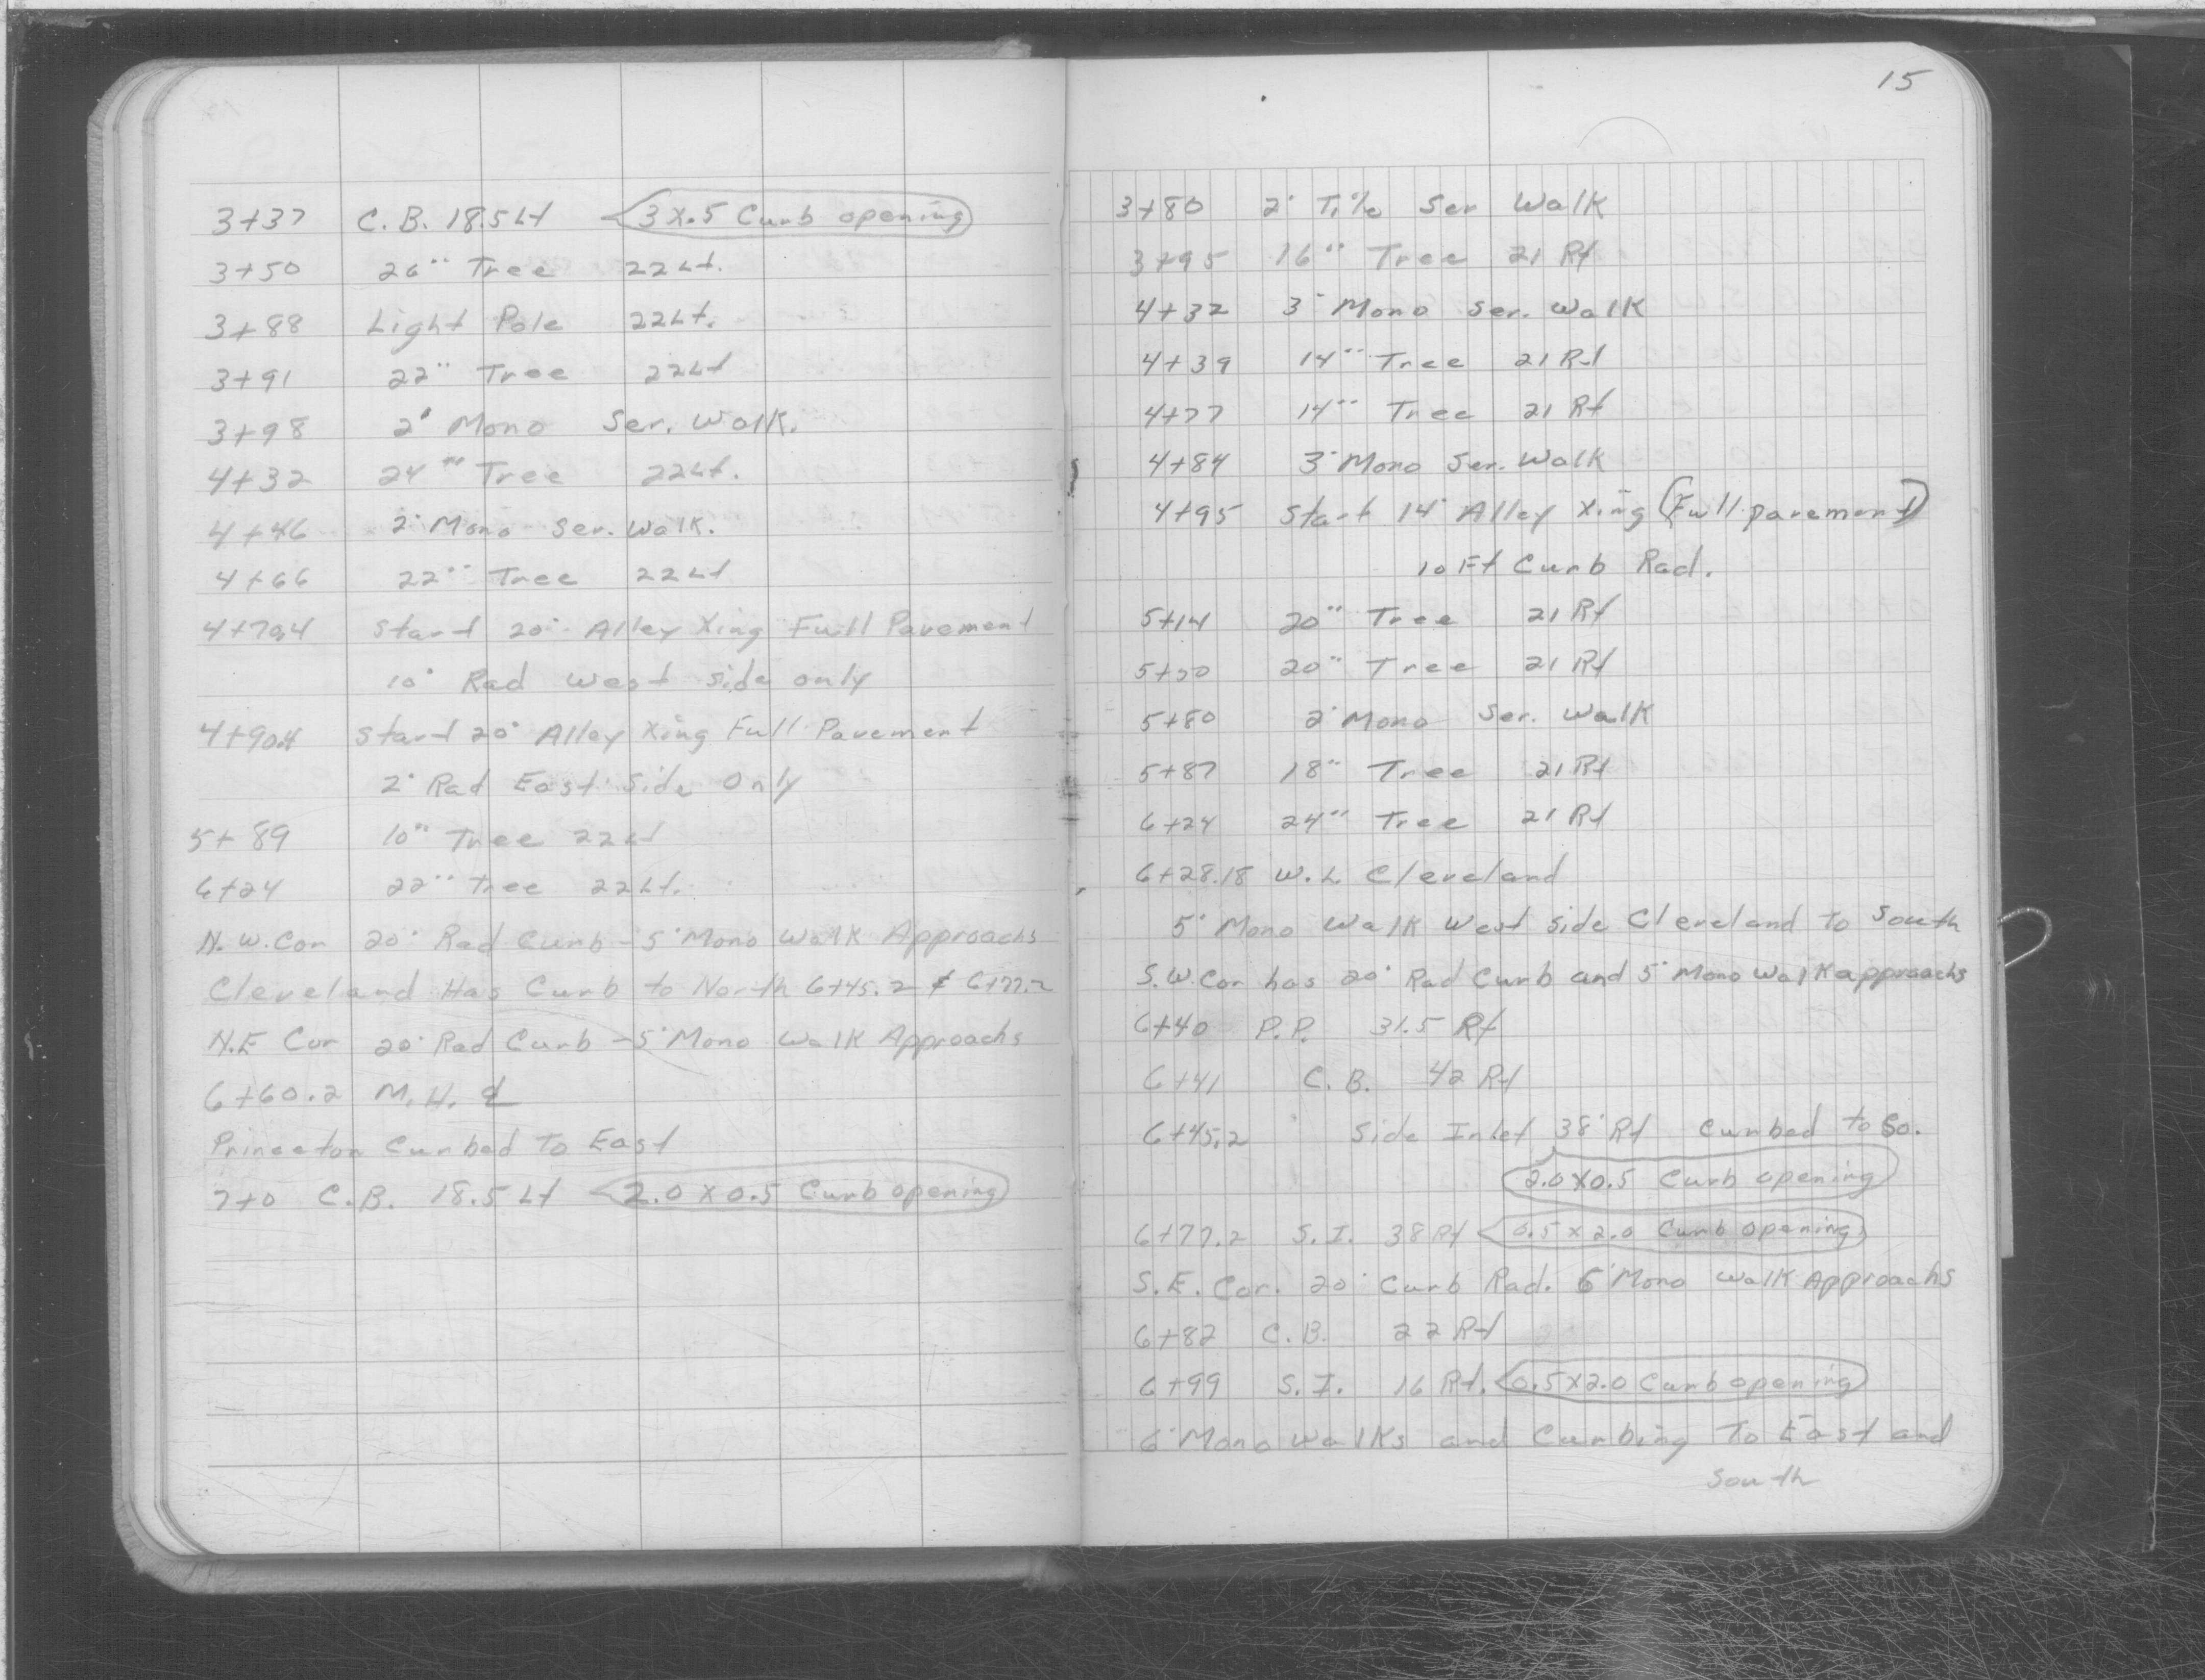 3+37 C.B. 18.5 Lt 3 X .5 Curb opening
3+50 26" Tree 22 Lt.
3+88 Light Pole 22 Lt.
3+91 22" Tree 22 Lt
3+98 2' Mono Ser. Walk.
4+32 24" Tree 22 Lt.
4+46 2' Mono Ser. Walk.
4+66 22" Tree 22 Lt
4+70.4 Start 20' Alley Xing Full Pavement
10' Rad West Side only
4+90.4 Start 20' Alley Xing Full Pavement
2' Rad East Side Only
5+89 10" Tree 22 Lt
6+24 22" Tree 22 Lt.
N.W. Cor 20' Rad Curb - 5' Mono Walk Approachs
Cleveland Has Curb to North 6+45.2 & 6+77.2
N.E Cor 20' Rad Curb - 5' Mono Walk Approachs
6+60.2 M.H. ℄
Princeton Curbed To East
7+0 C.B. 18.5 Lt 2.0 X 0.5 Curb opening
15
3+80 2' Tile Ser Walk
3+95 16" Tree 21 Rt
4+32 3' Mono Ser. Walk
4+39 14" Tree 21 Rt
4+77 14" Tree 21 Rt
4+84 3' Mono Ser. Walk
4+95 Start 14' Alley Xing (Full pavement)
10 Ft Curb Rad.
5+14 20" Tree 21 Rt
5+50 20" Tree 21 Rt
5+80 2' Mono Ser. Walk
5+87 18" Tree 21 Rt
6+24 24" Tree 21 Rt
6+28.18 W.L. Cleveland
5' Mono Walk West Side Cleveland To South
S.W. Cor has 20' Rad Curb and 5' Mono Walk approachs
6+40 P.P. 31.5 Rt
6+41 C.B. 42 Rt
6+45.2 Side Inlet 38' Rt Curbed to So.
2.0 X 0.5 Curb opening
6+77.2 S.I. 38 Rt 0.5 x 2.0 Curb Opening
S.E. Cor. 20' Curb Rad. 6' Mono Walk Approachs
6+82 C.B. 22 Rt
6+99 S.I. 16 Rt. 0.5 X 2.0 Curb opening
6' Mono Walks and Curbing To East and
South